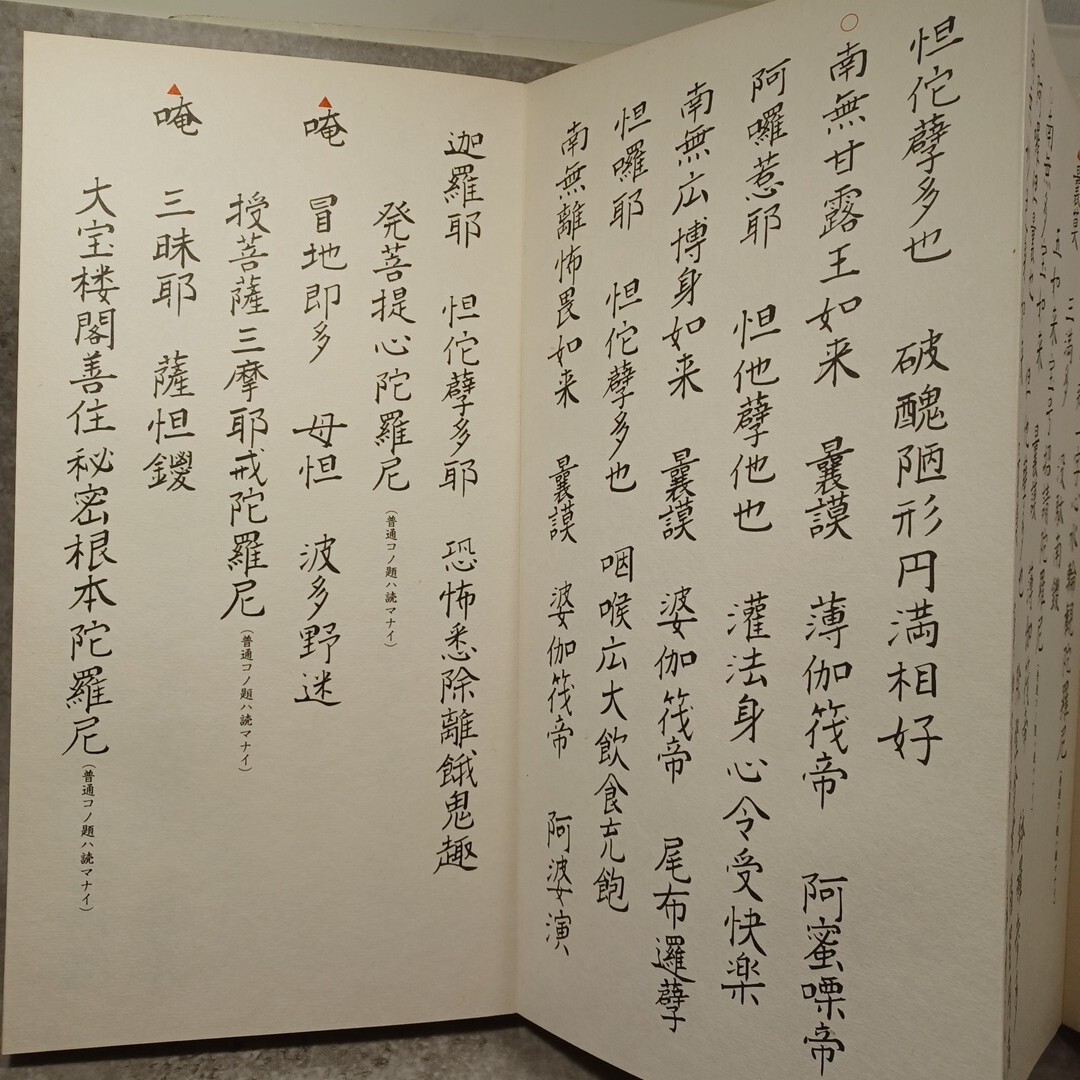 怛佗孽多也　破醜陋形円満相好
南無甘露王如来　曩謨　薄伽筏帝　阿蜜㗚帝
阿囉惹耶　怛他孽他也　灌法身心令受快楽
南無広博身如来　曩謨　婆伽筏帝　尾布邏孽
怛囉耶　怛佗孽多也　咽喉広大飲食充飽
南無離怖畏如来　曩謨　婆伽筏帝　阿婆演
迦羅耶　怛佗孽多耶　恐怖悉除離餓鬼趣
発菩提心陀羅尼（普通コノ題ハ読マナイ）
唵　冒地即多　母怛　波多野迷
授菩薩三摩耶戒陀羅尼（普通コノ題ハ読マナイ）
唵　三昧耶　薩怛鑁
大宝楼閣善住秘密根本陀羅尼（普通コノ題ハ読マナイ）